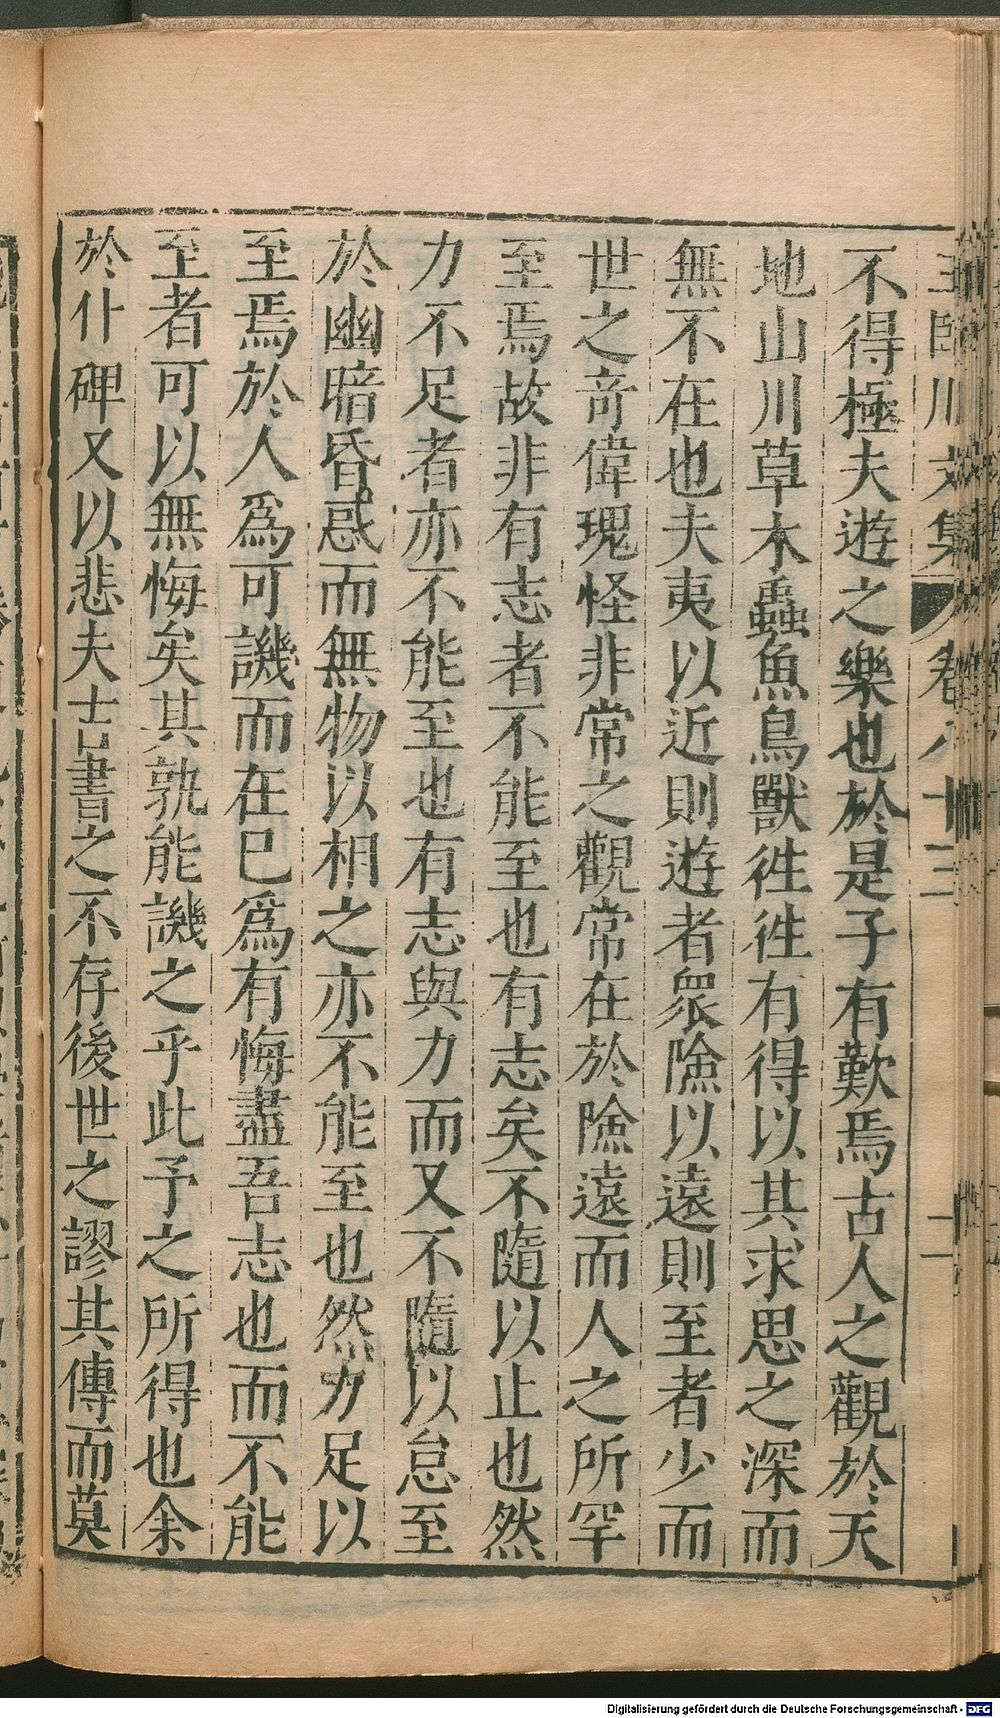 王臨川文集 卷八十三 二
不得極夫遊之樂也於是予有歎焉古人之觀於天
地山川草木蟲魚鳥獸徃徃有得以其求思之深而
無不在也夫夷以近則遊者衆險以遠則至者少而
世之竒偉瑰怪非常之觀常在於險遠而人之所罕
至焉故非有志者不能至也有志矣不隨以止也然
力不足者亦不能至也有志與力而又不隨以怠至
於幽暗昏惑而無物以相之亦不能至也然力足以
至焉於人爲可譏而在已爲有悔盡吾志也而不能
至者可以無悔矣其孰能譏之乎此予之所得也余
於仆碑又以悲夫古書之不存後世之謬其傳而莫
Digitalisierung gefördert durch die Deutsche Forschungsgemeinschaft - DFG